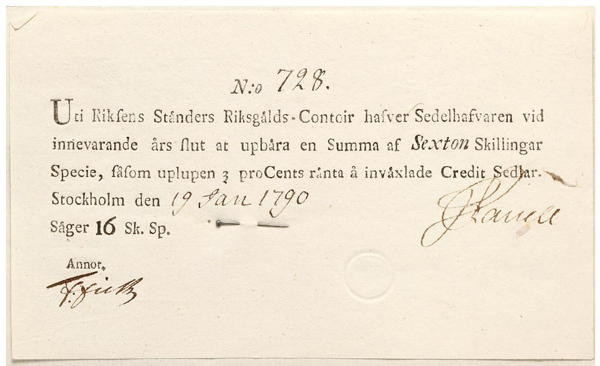 N:o 728.
Uti Riksens Ständers Riksgälds-Contoir hafver Sedelhafvaren vid
innevarande års slut at upbära en Summa af Sexton Skillingar
Specie, såsom uplupen 3 proCents ränta å inväxlade Credit Sedlar.
Stockholm den 19 Jan 1790
Säger 16 Sk. Sp.
Annot.